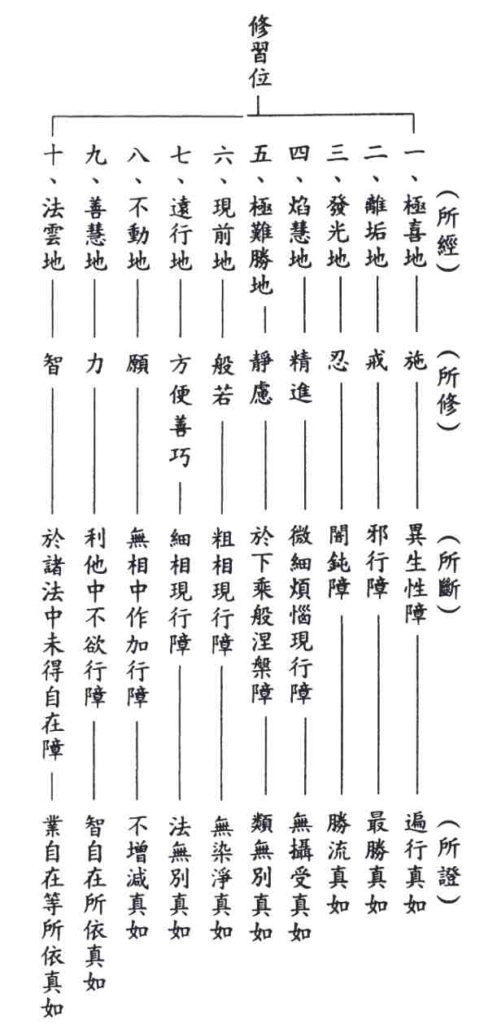 修習位
（所經）（所修）（所斷）（所證）
一、極喜地 施 異生性障 遍行真如
二、離垢地 戒 邪行障 最勝真如
三、發光地 忍 闇鈍障 勝流真如
四、焰慧地 精進 微細煩惱現行障 無攝受真如
五、極難勝地 靜慮 於下乘般涅槃障 類無別真如
六、現前地 般若 粗相現行障 無染淨真如
七、遠行地 方便善巧 細相現行障 法無別真如
八、不動地 願 無相中作加行障 不增減真如
九、善慧地 力 利他中不欲行障 智自在所依真如
十、法雲地 智 於諸法中未得自在障 業自在等所依真如